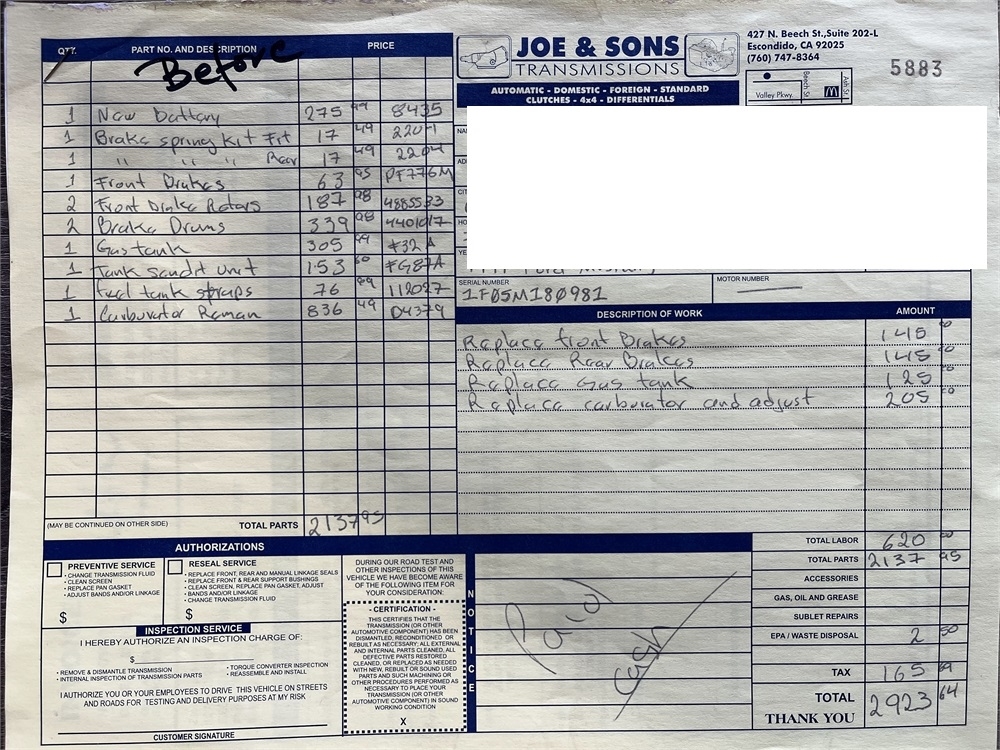 Before
QTY. PART NO. AND DESCRIPTION PRICE
1 New battery 275 99 8435
1 Brake spring kit Frt 17 49 2201
1 " " " Rear 17 49 2204
1 Front Brakes 63 95 PF776M
2 Front Rotors 187 98 4885533
2 Brake Drums 339 98 4401017
1 Gas tank 305 99 #32A
1 Tank unit 153 60 FG87A
1 tank straps 76 99 112027
1 Carburator Reman 836 49 D4379
(MAY BE CONTINUED ON OTHER SIDE) TOTAL PARTS 2137 95
JOE & SONS
TRANSMISSIONS
AUTOMATIC - DOMESTIC - FOREIGN - STANDARD
CLUTCHES - 4x4 - DIFFERENTIALS
427 N. Beech St.,Suite 202-L
Escondido, CA 92025
(760) 747-8364
Valley Pkwy.
Beech St.
Ash St.
5883
SERIAL NUMBER
1F05M180981
MOTOR NUMBER
DESCRIPTION OF WORK AMOUNT
Replace front Brakes 145 00
Replace Rear Brakes 145 00
Replace Gas tank 125 00
Replace carburator and adjust 205 00
AUTHORIZATIONS
PREVENTIVE SERVICE
• CHANGE TRANSMISSION FLUID
• CLEAN SCREEN
• REPLACE PAN GASKET
• ADJUST BANDS AND/OR LINKAGE
$
RESEAL SERVICE
• REPLACE FRONT, REAR AND MANUAL LINKAGE SEALS
• REPLACE FRONT & REAR SUPPORT BUSHINGS
• CLEAN SCREEN, REPLACE PAN GASKET, ADJUST
BANDS AND/OR LINKAGE
• CHANGE TRANSMISSION FLUID
$
INSPECTION SERVICE
I HEREBY AUTHORIZE AN INSPECTION CHARGE OF:
$
• REMOVE & DISMANTLE TRANSMISSION
• INTERNAL INSPECTION OF TRANSMISSION PARTS
• TORQUE CONVERTER INSPECTION
• REASSEMBLE AND INSTALL
I AUTHORIZE YOU OR YOUR EMPLOYEES TO DRIVE THIS VEHICLE ON STREETS
AND ROADS FOR TESTING AND DELIVERY PURPOSES AT MY RISK
CUSTOMER SIGNATURE
DURING OUR ROAD TEST AND
OTHER INSPECTIONS OF THIS
VEHICLE WE HAVE BECOME AWARE
OF THE FOLLOWING ITEM FOR
YOUR CONSIDERATION:
- CERTIFICATION -
THIS CERTIFIES THAT THE
TRANSMISSION (OR OTHER
AUTOMOTIVE COMPONENT) HAS BEEN
DISMANTLED, RECONDITIONED OR
REBUILT AS NECESSARY; ALL EXTERNAL
AND INTERNAL PARTS CLEANED, ALL
DEFECTIVE PARTS RESTORED
CLEANED, OR REPLACED AS NEEDED
WITH NEW, REBUILT OR SOUND USED
PARTS AND SUCH MACHINING OR
OTHER PROCEDURES PERFORMED AS
NECESSARY TO PLACE YOUR
TRANSMISSION (OR OTHER
AUTOMOTIVE COMPONENT) IN SOUND
WORKING CONDITION
X
NOTICE
Paid
Cash
TOTAL LABOR 620 00
TOTAL PARTS 2137 95
ACCESSORIES
GAS, OIL AND GREASE
SUBLET REPAIRS
EPA / WASTE DISPOSAL 2 50
TAX 165 69
TOTAL 2923 64
THANK YOU